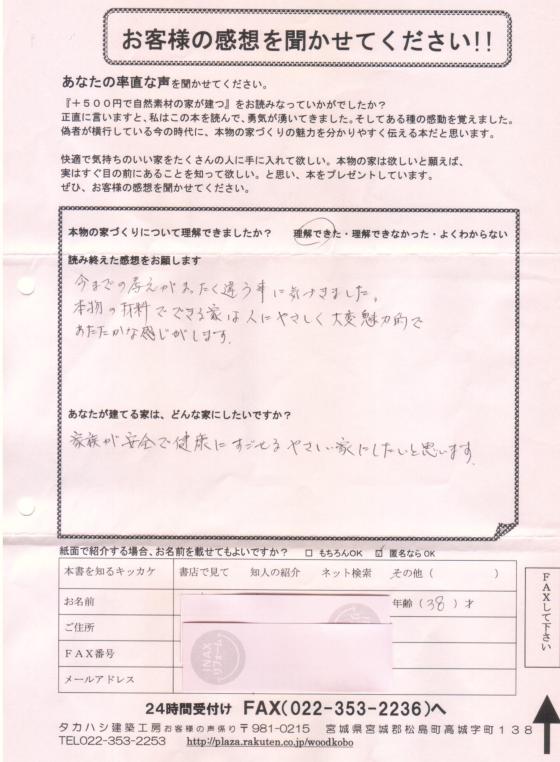 お客様の感想を聞かせてください!!
あなたの率直な声を聞かせてください。
『＋５００円で自然素材の家が建つ』をお読みなっていかがでしたか？
正直に言いますと、私はこの本を読んで、勇気が湧いてきました。そしてある種の感動を覚えました。
偽者が横行している今の時代に、本物の家づくりの魅力を分かりやすく伝える本だと思います。
快適で気持ちのいい家をたくさんの人に手に入れて欲しい。本物の家は欲しいと願えば、
実はすぐ目の前にあることを知って欲しい。と思い、本をプレゼントしています。
ぜひ、お客様の感想を聞かせてください。
本物の家づくりについて理解できましたか？　理解できた・理解できなかった・よくわからない
読み終えた感想をお願します
今までの考えがまったく違う事に気付きました。
本物の材料でできる家は人にやさしく大変魅力的で
あたたかな感じがします。
あなたが建てる家は、どんな家にしたいですか？
家族が安全で健康にすごせるやさしい家にしたいと思います。
紙面で紹介する場合、お名前を載せてもよいですか？　□ もちろんOK　☑ 匿名なら OK
本書を知るキッカケ　書店で見て　知人の紹介　ネット検索　その他（　　　）
お名前　年齢（38）才
ご住所
ＦＡＸ番号
メールアドレス
INAX
リフォーム
ＦＡＸして下さい
24時間受付け　FAX(022-353-2236)へ
タカハシ建築工房お客様の声係り〒981-0215　宮城県宮城郡松島町高城字町１３８
TEL022-353-2253　http://plaza.rakuten.co.jp/woodkobo